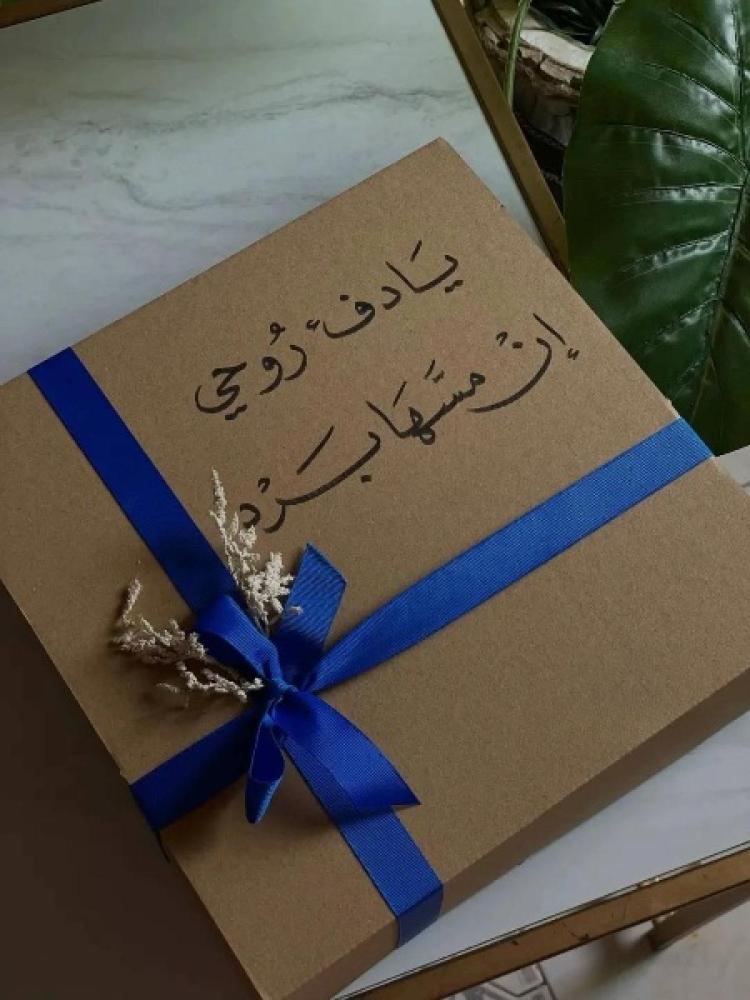 يَا دفءَ رُوحي
إنْ مسَّهَا بَرْد